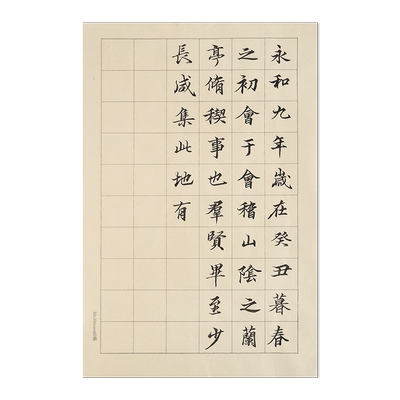 永和九年歲在癸丑暮春
之初會于會稽山陰之蘭
亭脩稧事也羣賢畢至少
長咸集此地有